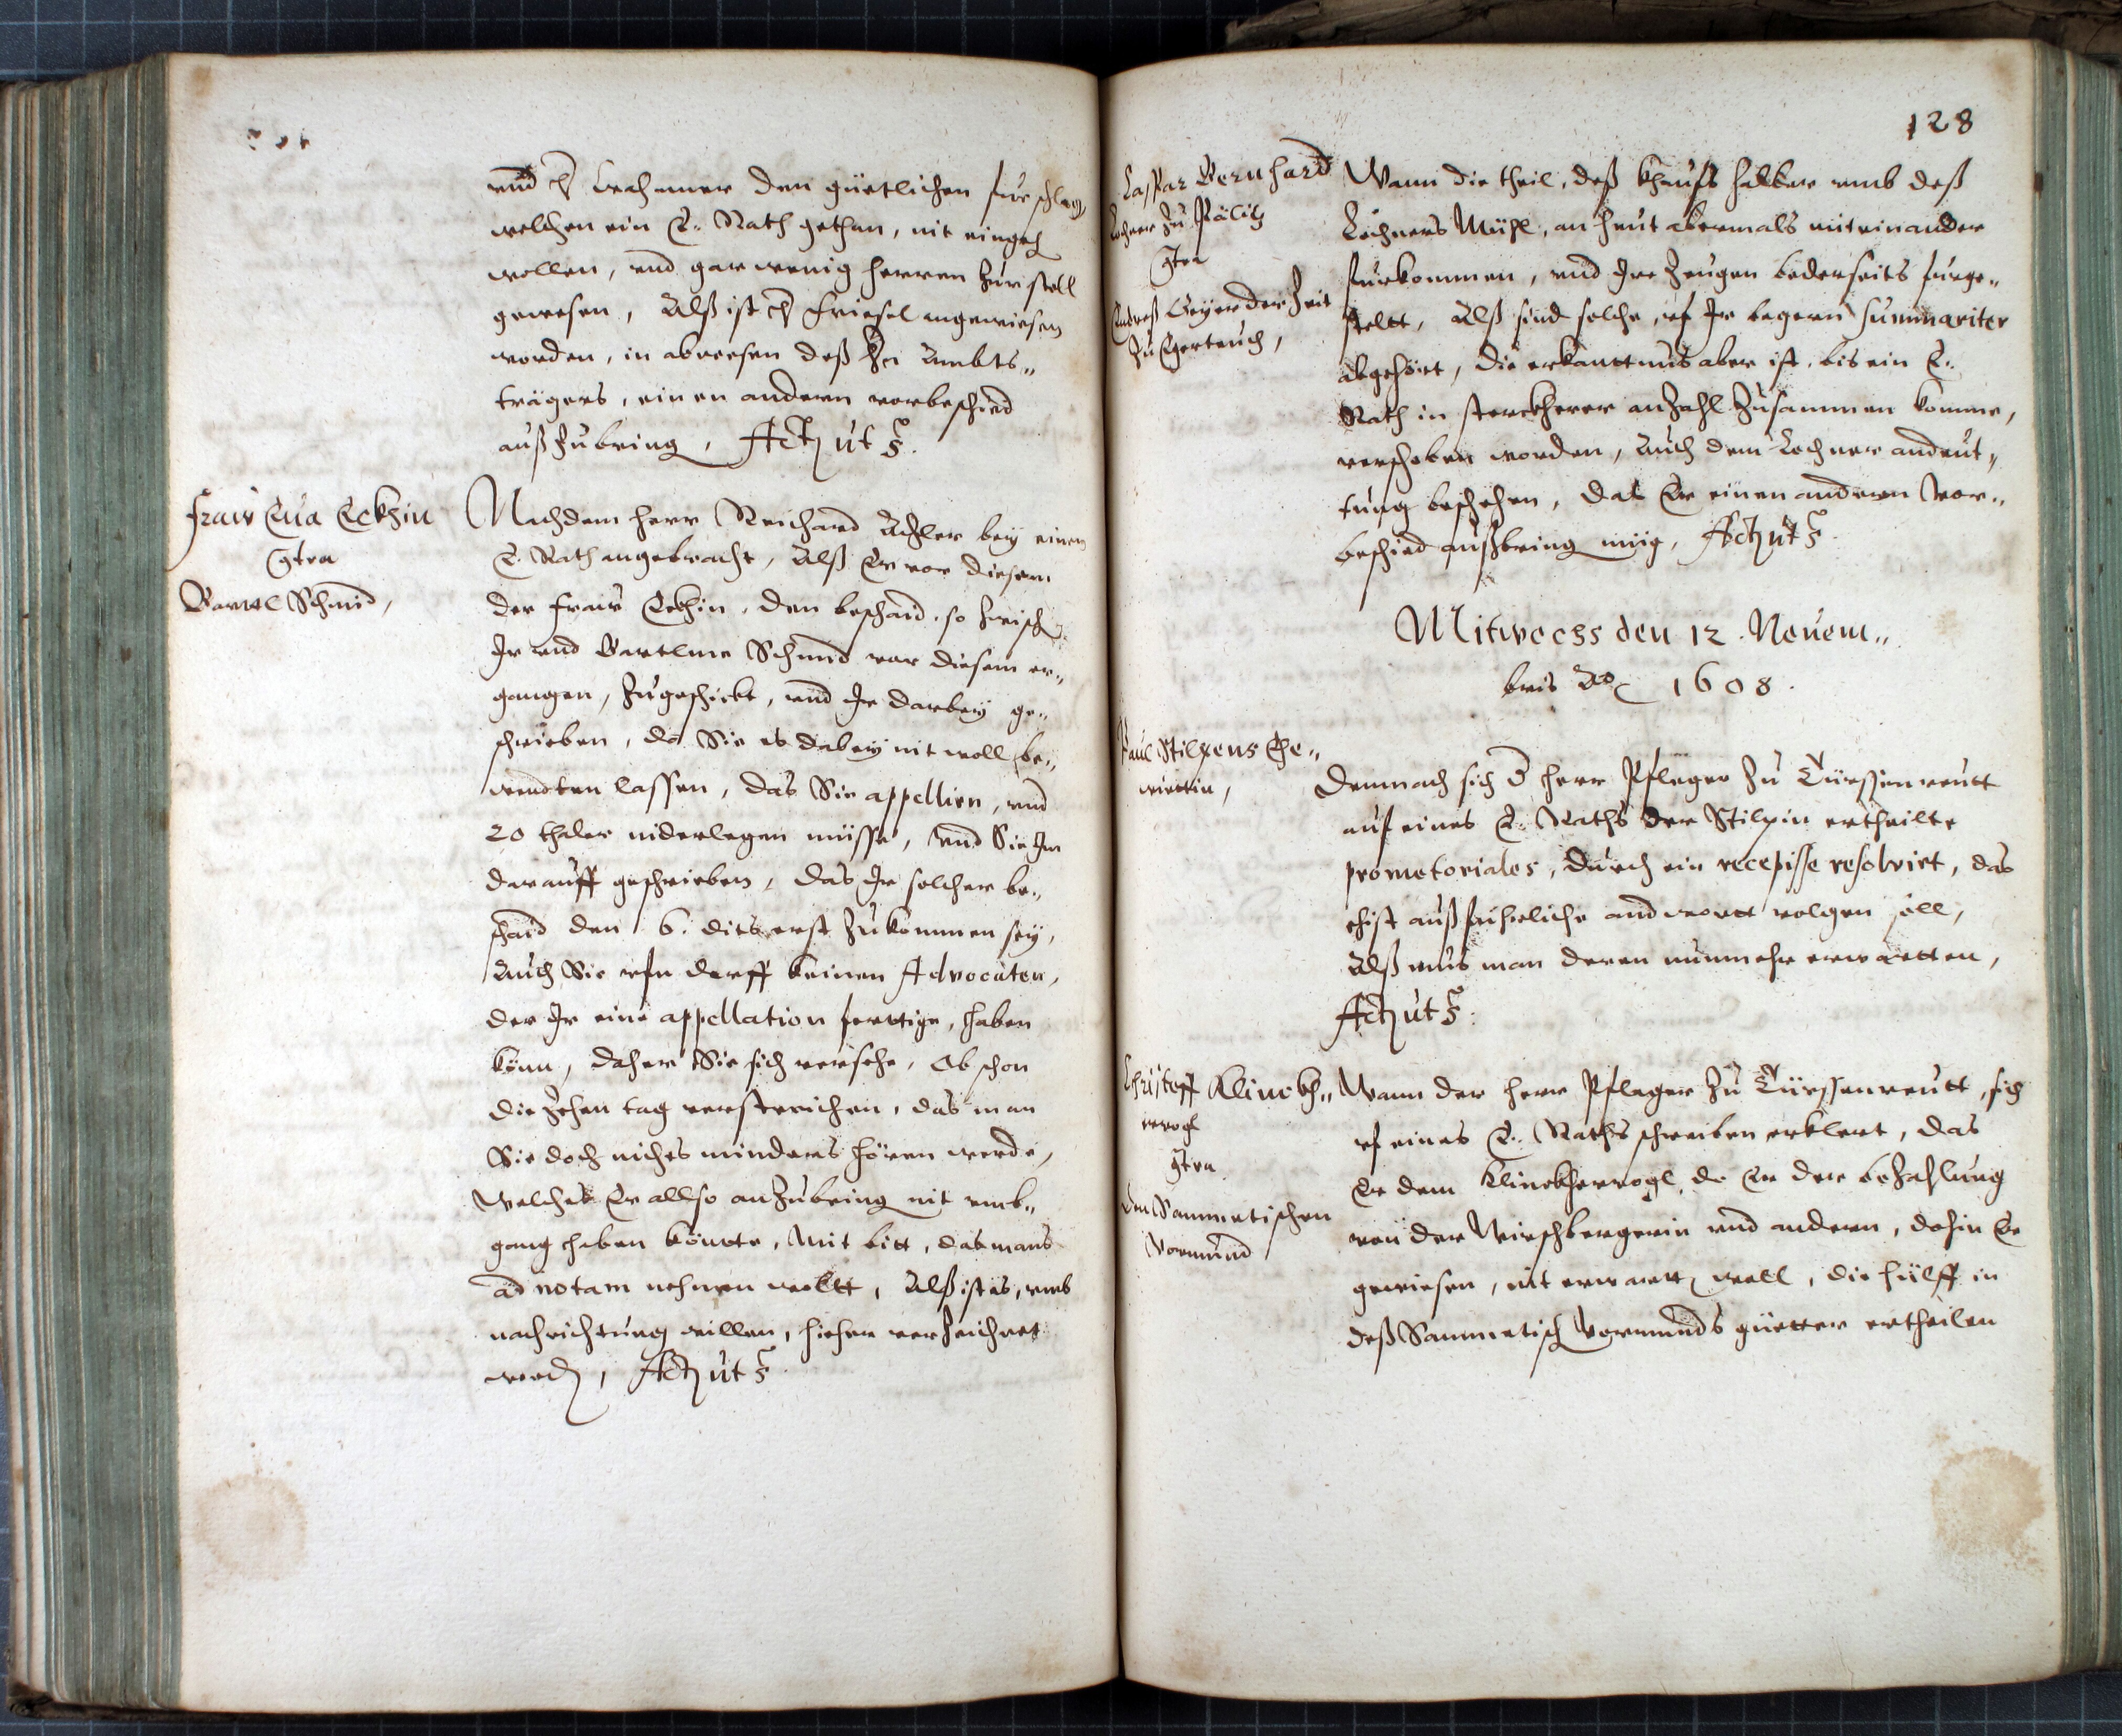 und d Lechnner den güetlichen fürschlag,
welchen ein E. Rath gethan, nit eingeh
wollen, und gar wenig herren zur stell
gewesen, Alß ist d Friesel angewiesen
worden, in abwesen deß Hn Ambts„
trägers, einen andern vorbeschied
außzubring, Act ut s.
Fraw Eva Eckhin
Contra
Bartel Schmid,
Nachdem herr Reichard Adler bey einem
E. Rath angebracht, Alß Er vor diesem
der Fraw Eckhin, den beschaid, so zwisch
Ir und Bartlme Schmid vor diesem er„
gangen, zugeschickt, und Ir darbey ge„
schrieben, da Sie es dabey nit woll be„
wendten lassen, das Sie appellirn, und
20 thaler niderlegen müsse, und Sie Im
darauff geschrieben, das Ir solcher be„
schaid den 6. dits erst zukommen sey,
Auch Sie ufm dorff keinen Advocaten,
der Ir eine appellation ferttige, haben
könn, daher Sie sich versehe, Ob schon
die zehen tag verstrichen, das man
Sie doch nichts minders hören werde,
Welches Er allso anzubring nit umb„
gang haben könnte, Mit bitt, das mans
ad notam nehmen wollt, Alß ist es, umb
nachrichtung willen, hieher verzeichnet
word, Act ut s.
128
Caspar Bernhard
Lochner zu Pälitz
Contra
Andreß Geyer der Zeit
zu
Wann die theil, deß khaufs halber umb deß
Lochners Mühl, an heut abermals miteinander
fürkommen, und Ire Zeugen bederseits fürge„
stellt, Alß sind solche, uf Ir begern summariter
abgehört, die erkanttnus aber ist, bis ein E.
Rath in sterckherer anzahl zusammen komme,
verschoben worden, Auch dem Lochner andeut„
tung beschehen, das Er einen andern Vor„
beschied außbring müg, Act ut s.
Mitwochs den 12. Novem„
bris Ao 1608.
Paul Stilpens Ehe„
wirttin,
Demnach sich d herr Pfleger zu Türssenreutt
auf eines E. Raths der Stilpin ertheilte
promotoriales, durch ein recepisse resolvirt, das
ehist außführliche andwortt volgen soll,
Alß mus man deren nunmehr erwartten,
Act ut s.
Christoff Klinckh„
ervogl
Contra
den Sammetischen
Vormund
Wann der herr Pfleger zu Türssenreutt, sich
uf eines E. Raths schreiben erklert, das
Er dem Klinckhervogl, da Er der bezahlung
von der Wirschbergerin und andern, dahin Er
gewiesen, nit erwartt woll, die hülff in
deß Sammetisch Vormunds güetter ertheilen